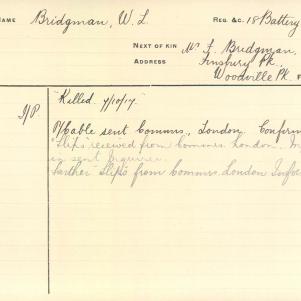 NAME Bridgman, W. L REG &C. 18 Battery
NEXT OF KIN Mr F. Bridgman,
ADDRESS Finsbury Pk.
Woodville Pk.
"Killed. 4/10/17.
I/P P/Cable sent Commrs., London. Confirm
"Slips" received from Commrs. London.
sent Enquirer.
Further "Slips" from Commrs. London Info